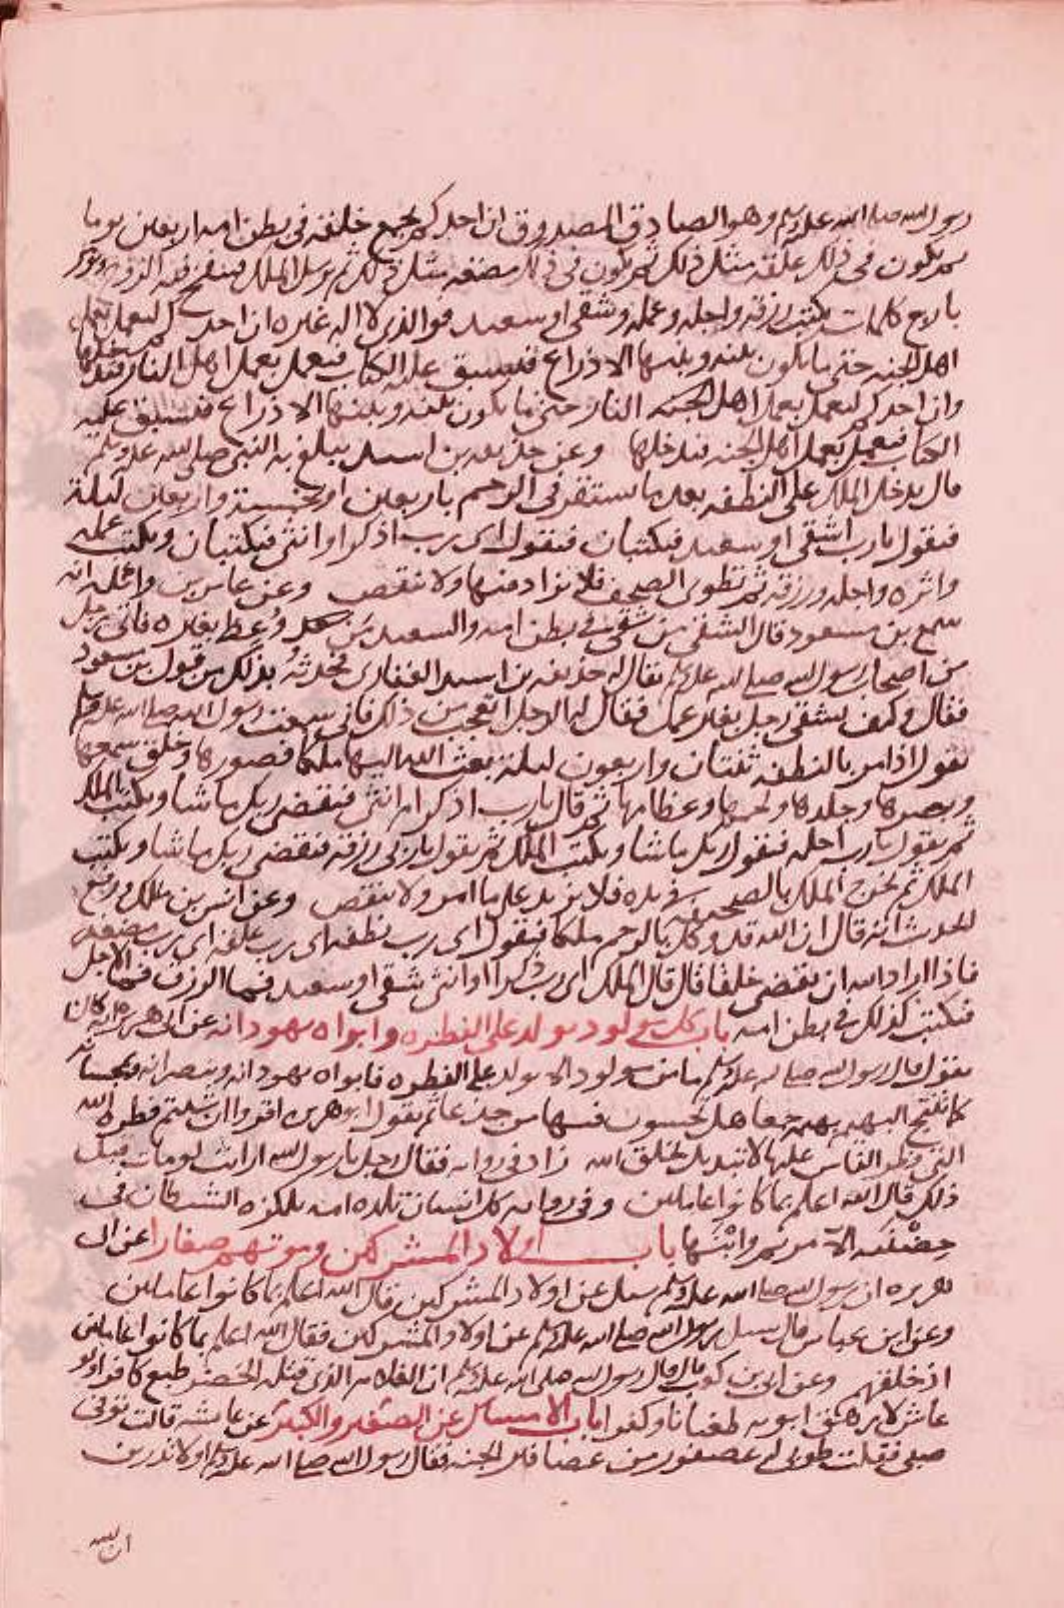 رسول الله صلى الله عليه وسلم وهو الصادق المصدوق ان احدكم يجمع خلقه في بطن امه اربعين يوما
ثم يكون في ذلك علقة مثل ذلك ثم يكون في ذلك مضغة مثل ذلك ثم يرسل الملك فينفخ فيه الروح ويؤمر
باربع كلمات يكتب رزقه واجله وعمله وشقي او سعيد فوالذي لا اله غيره ان احدكم ليعمل بعمل
اهل الجنة حتى ما يكون بينه وبينها الا ذراع فيسبق عليه الكتاب فيعمل بعمل اهل النار فيدخلها
وان احدكم ليعمل بعمل اهل النار حتى ما يكون بينه وبينها الا ذراع فيسبق عليه
الكتاب فيعمل بعمل اهل الجنة فيدخلها وعن حذيفة بن اسيد يبلغ به النبي صلى الله عليه وسلم
قال يدخل الملك على النطفة بعد ما تستقر في الرحم باربعين او خمسة واربعين ليلة
فيقول يا رب اشقي او سعيد فيكتبان فيقول اي رب اذكر او انثى فيكتبان ويكتب عمله
واثره واجله ورزقه ثم تطوى الصحف فلا يزاد فيها ولا ينقص وعن عامر بن واثلة انه
سمع بن مسعود قال الشقي من شقي في بطن امه والسعيد من وعظ بغيره فاتى رجل
من اصحاب رسول الله صلى الله عليه وسلم يقال له حذيفة بن اسيد الغفاري فحدثه بذلك من قول بن مسعود
فقال وكيف يشقى رجل بغير عمل فقال له الرجل اتعجب من ذلك فاني سمعت رسول الله صلى الله عليه وسلم
يقول اذا مر بالنطفة ثنتان واربعون ليلة بعث الله اليها ملكا فصورها وخلق سمعها
وبصرها وجلدها ولحمها وعظامها ثم قال يا رب اذكر ام انثى فيقضي ربك ما شا ويكتب الملك
ثم يقول يا رب اجله فيقول ربك ما شا ويكتب الملك ثم يقول يا رب رزقه فيقضي ربك ما شا ويكتب
الملك ثم يخرج الملك بالصحيفة في يده فلا يزيد على ما امر ولا ينقص وعن انس بن ملك ورفع
الحديث انه قال ان الله قد وكل بالرحم ملكا فيقول اي رب نطفة اي رب علقة اي رب مضغة
فاذا اراد الله ان يقضي خلقا قال قال الملك اي رب ذكر او انثى شقي او سعيد فما الرزق فما الاجل
فيكتب كذلك في بطن امه باب كل مولود يولد على الفطرة وابواه يهودانه عن ابي هريرة انه كان
يقول قال رسول الله صلى الله عليه وسلم ما من مولود الا يولد على الفطرة فابواه يهودانه وينصرانه ويمجسانه
كما تنتج البهيمة بهيمة جمعا هل تحسون فيها من جدعا ثم يقول ابو هريرة اقروا ان شئتم فطرة الله
التي فطر الناس عليها لا تبديل لخلق الله زاد في رواية فقال رجل يا رسول الله ارايت لو مات قبل
ذلك قال الله اعلم بما كانوا عاملين وفي رواية كل انسان تلده امه يلكزه الشيطان في
حضنيه الا مريم وابنها باب اولاد المشركين وموتهم صغارا عن ابي
هريرة ان رسول الله صلى الله عليه وسلم سئل عن اولاد المشركين قال الله اعلم بما كانوا عاملين
وعن ابن عباس قال سئل رسول الله صلى الله عليه وسلم عن اولاد المشركين فقال الله اعلم بما كانوا عاملين
اذ خلقهم وعن ابي بن كعب قال قال رسول الله صلى الله عليه وسلم ان الغلام الذي قتله الخضر طبع كافرا ولو
عاش لارهق ابويه طغيانا وكفرا باب عن الصغير والكبير عن عايشه قالت توفي
صبي فقلت طوبى له عصفور من عصافير الجنة فقال رسول الله صلى الله عليه وسلم اولا تدرين
ان الله